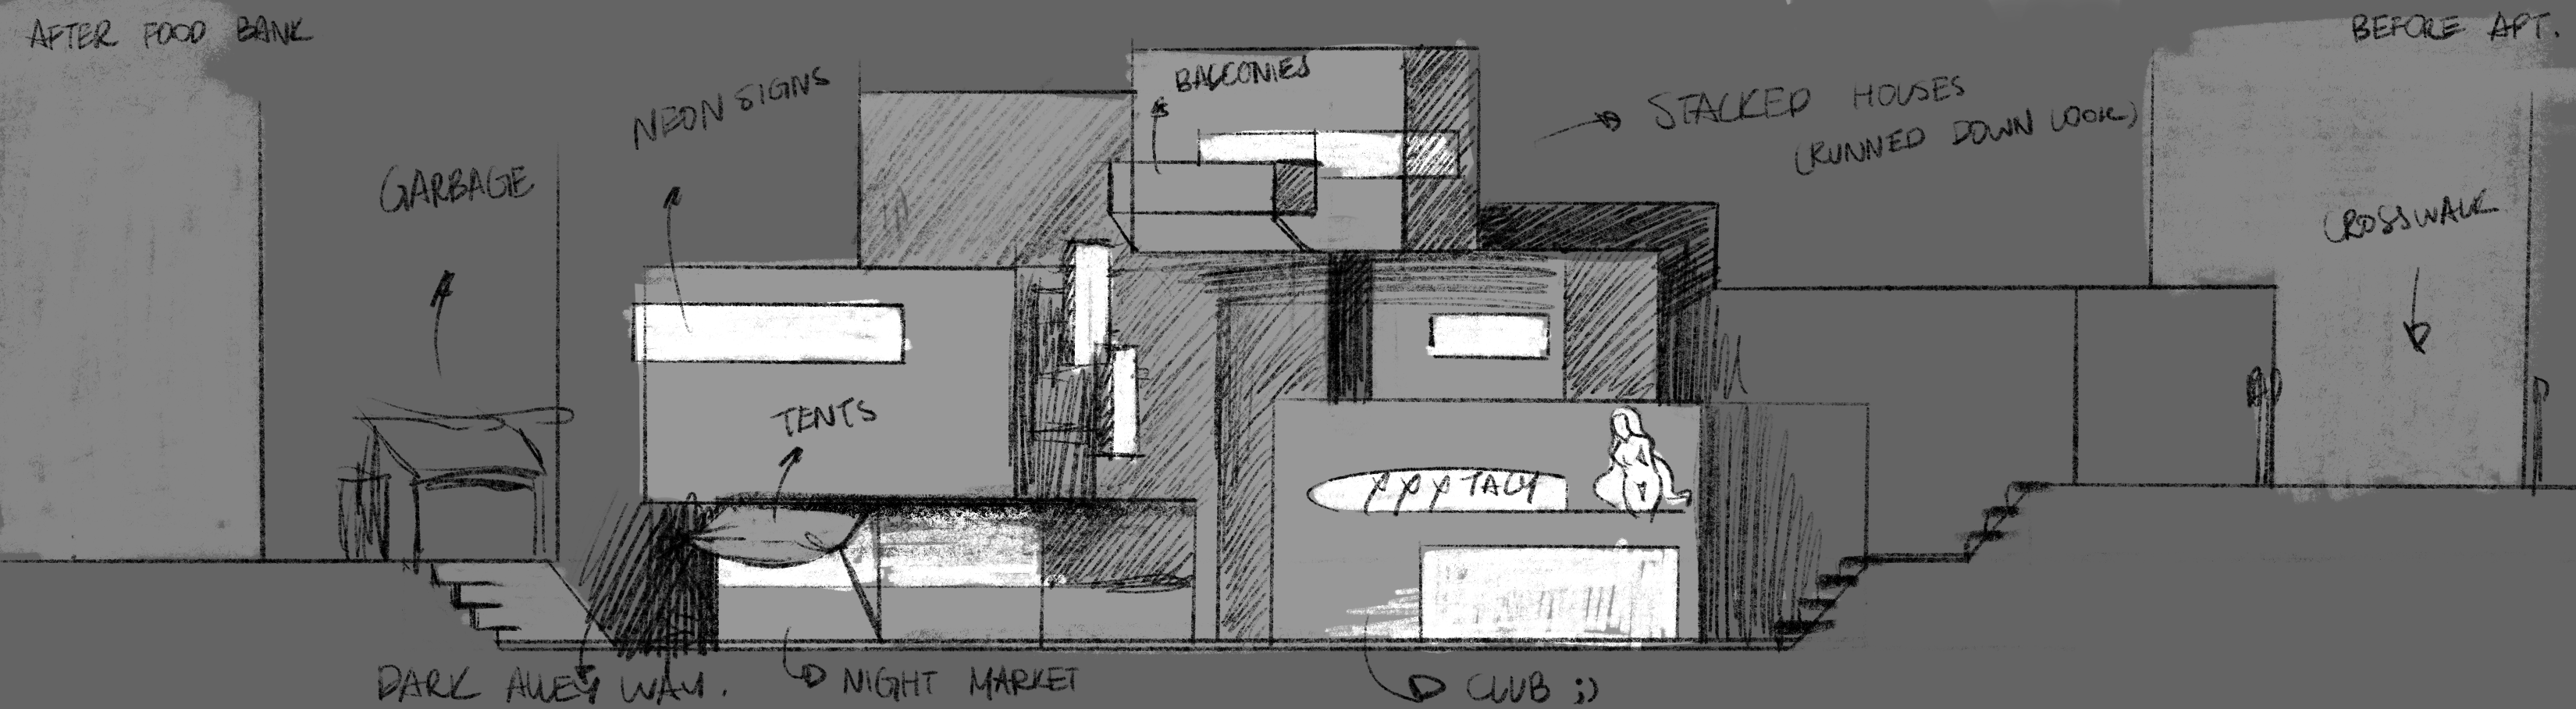 AFTER FOOD BANK
BEFORE APT.
NEON SIGNS
BALCONIES
STACKED HOUSES
(RUNNED DOWN LOOK)
GARBAGE
CROSSWALK
TENTS
XXXTACY
DARK ALLEY WAY.
NIGHT MARKET
CLUB ;)